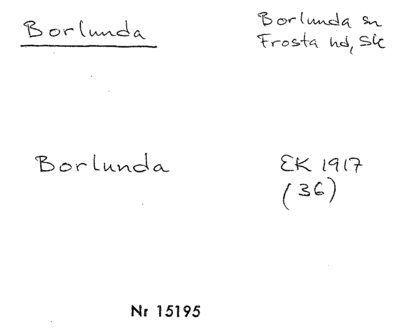 Borlunda
Borlunda sn
Frosta hd, Sk
Borlunda
EK 1917
(36)
Nr 15195